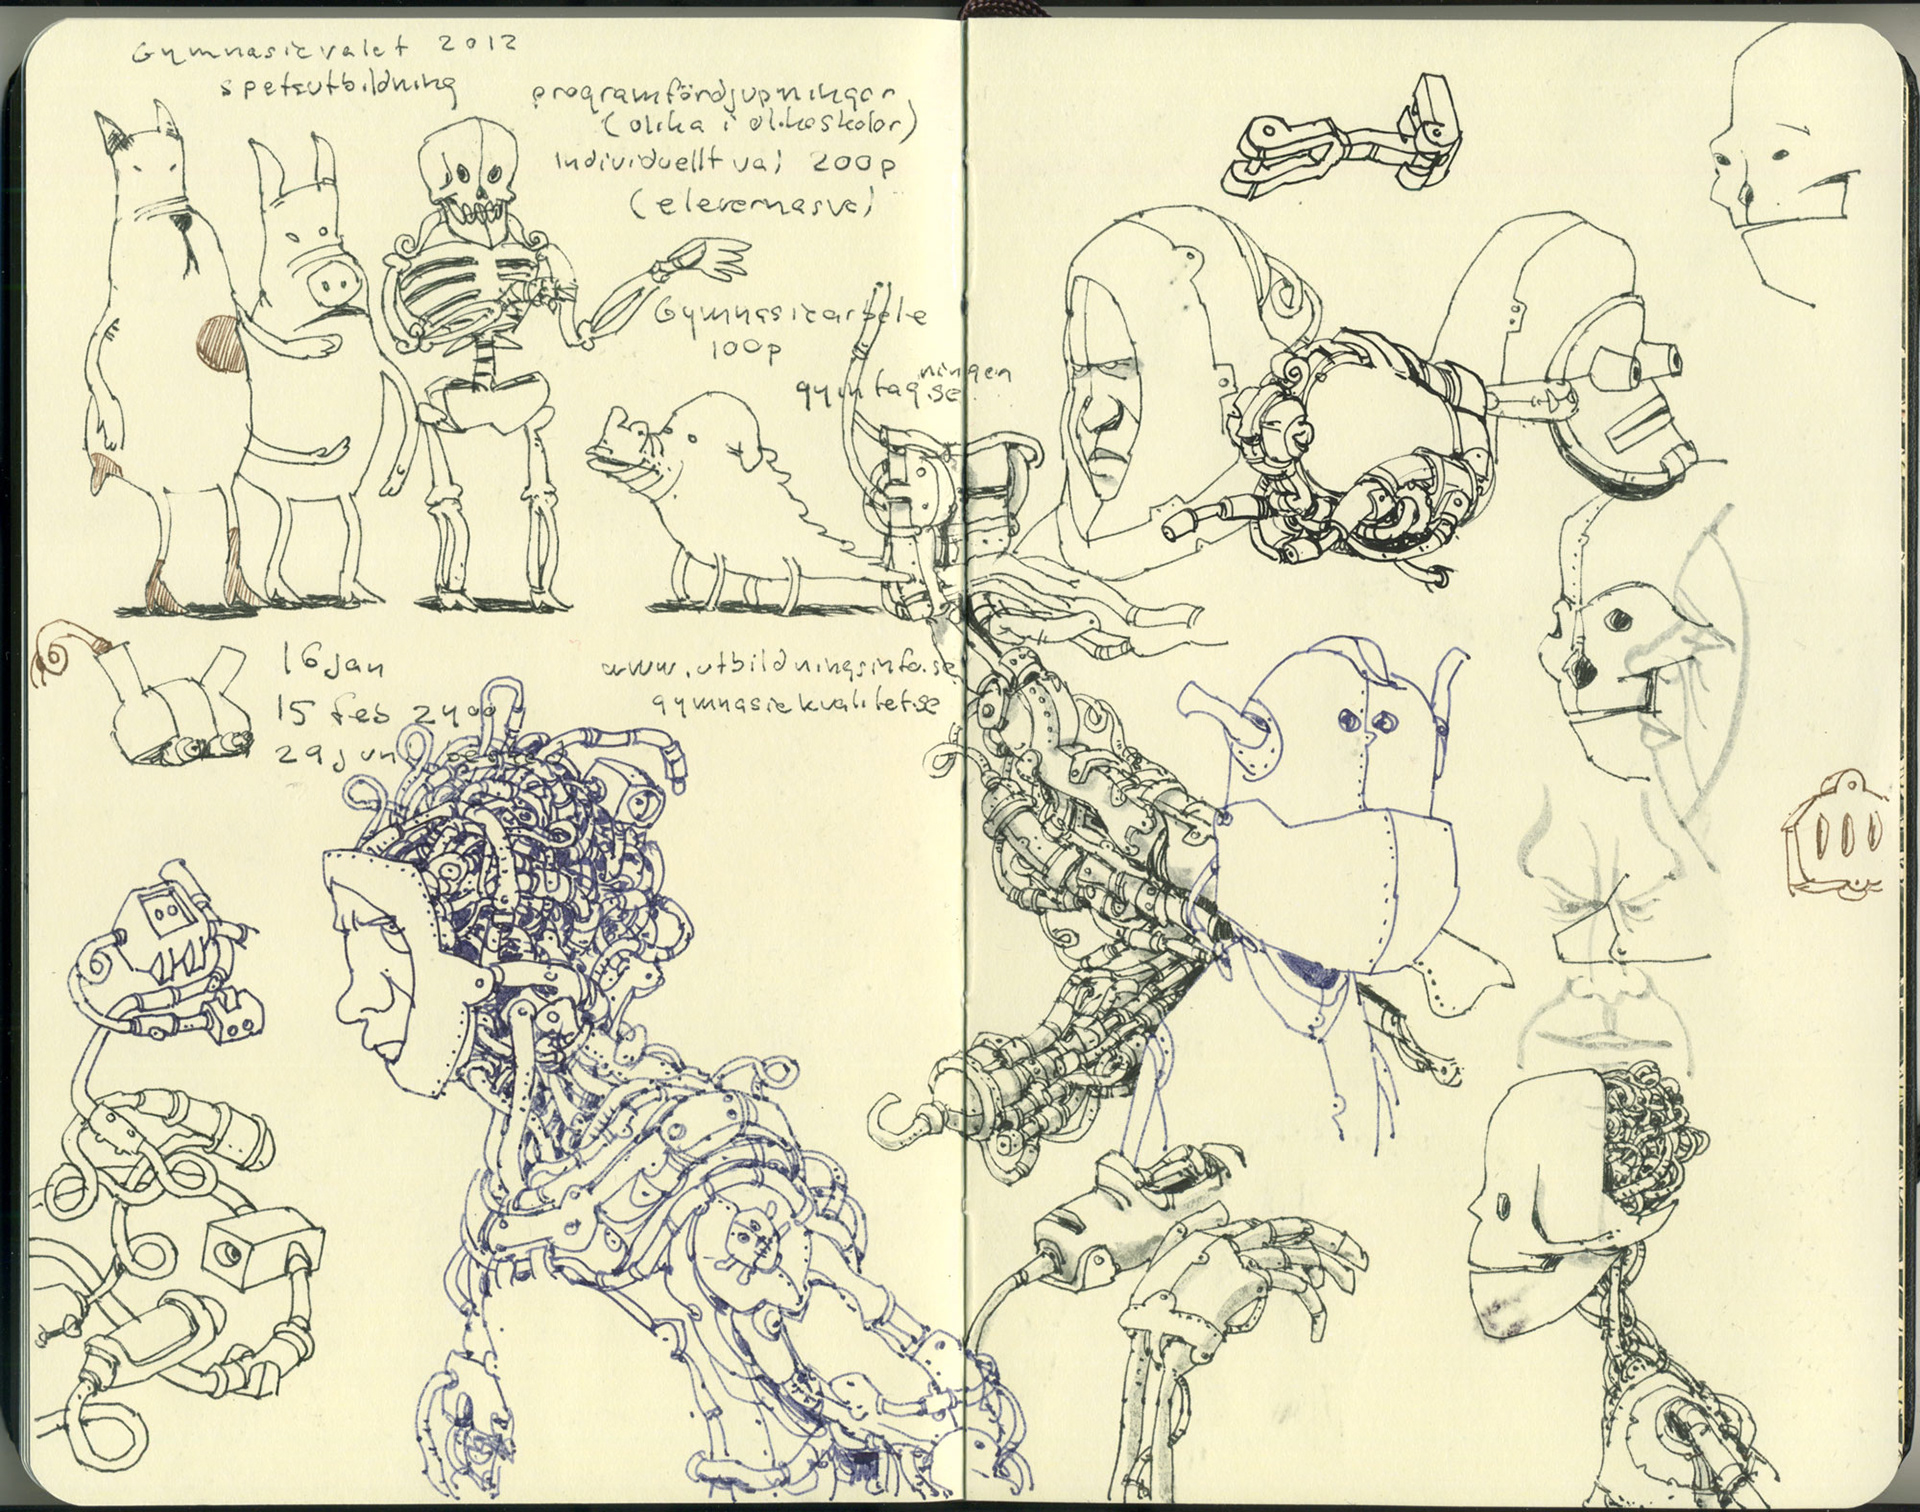 Gymnasievalet 2012
spetsutbildning
programfördjupningar
(olika i olika skolor)
Individuellt val 200p
(elevernas val
Gymnasiearbete
100p
ningen
www.utbildningsinfo.se
gymnasiekvalitet.se
16 jan
15 feb 2400
29 jun